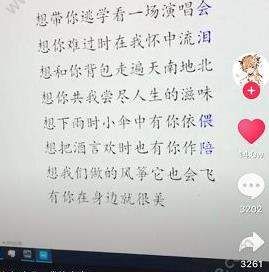 想带你逃学看一场演唱会
想你难过时在我怀中流泪
想和你背包走遍天南地北
想你共我尝尽人生的滋味
想下雨时小伞中有你依偎
想把酒言欢时也有你作陪
想我们做的风筝它也会飞
有你在身边就很美
3202
3261